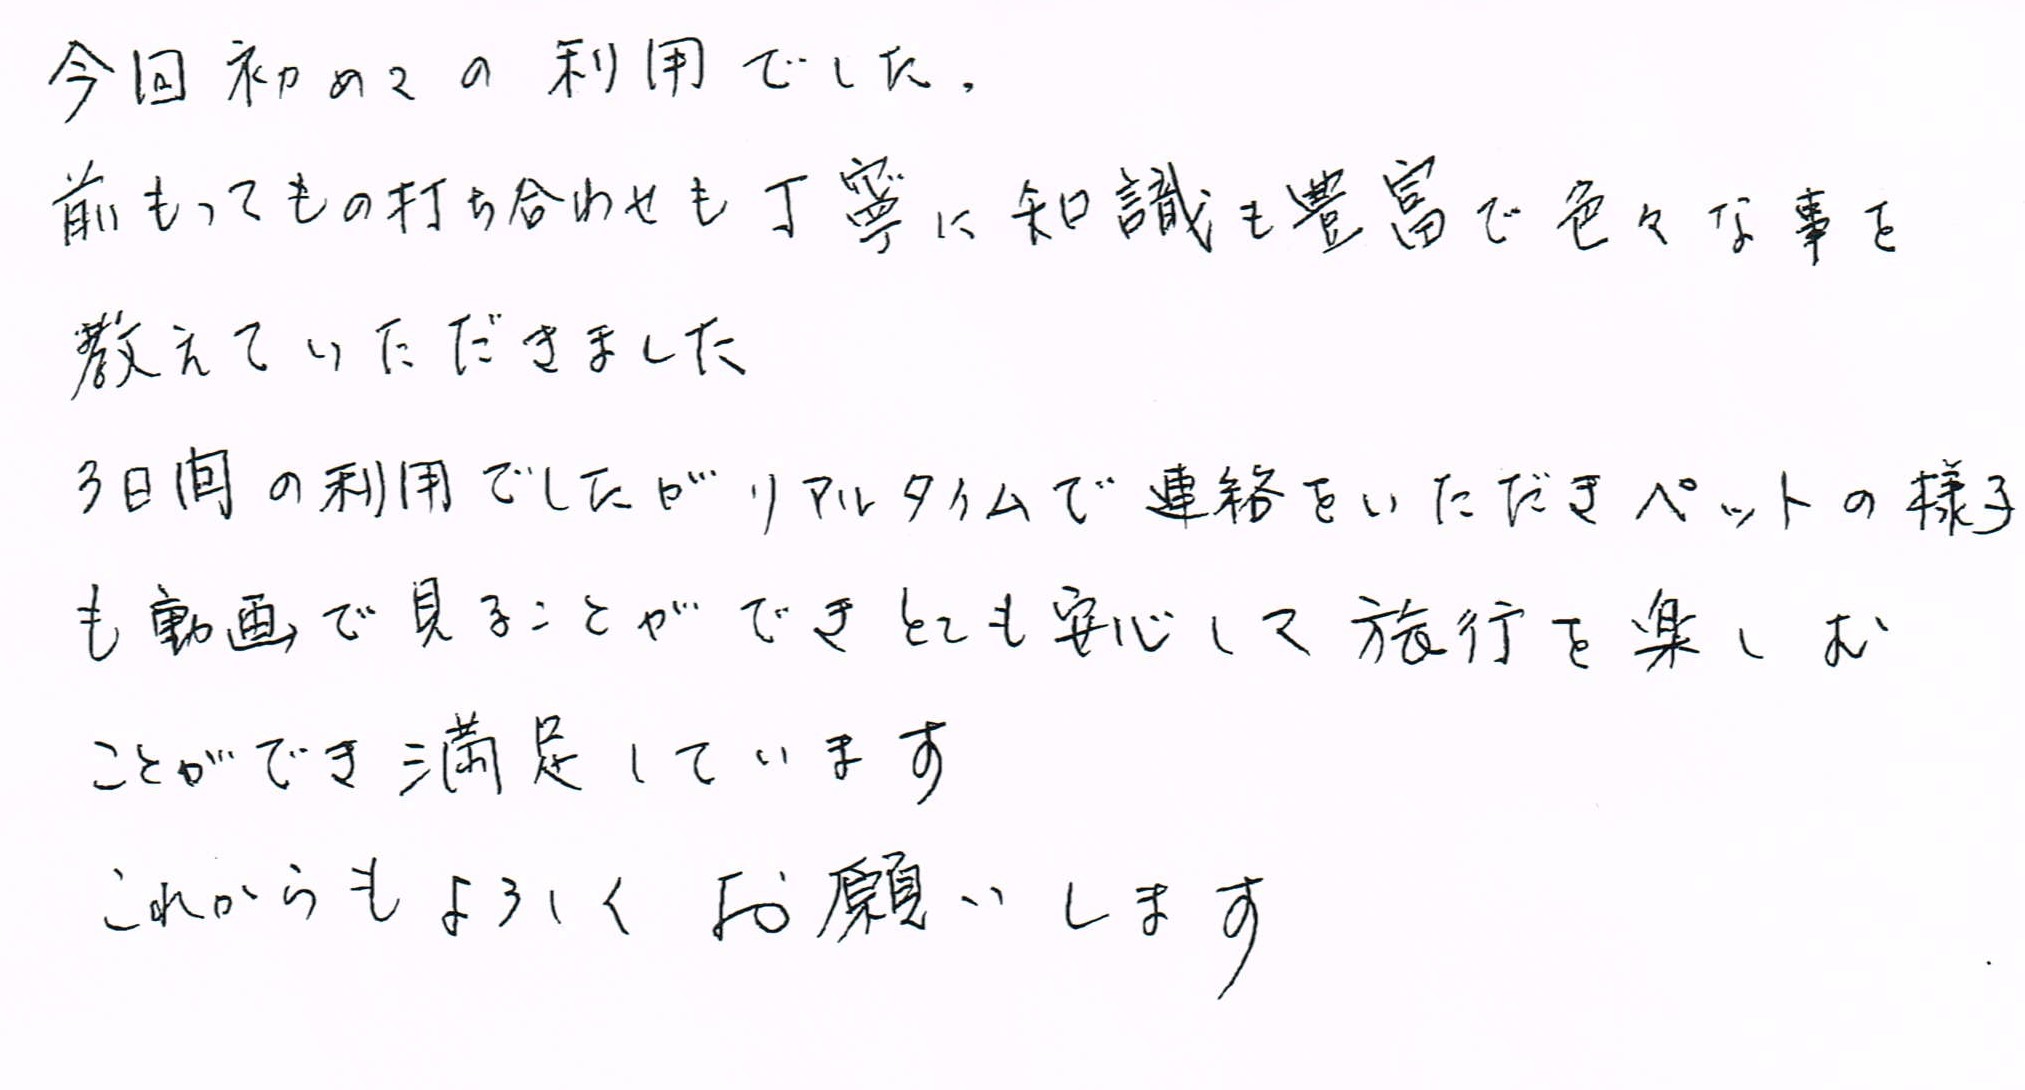 今回初めての利用でした.
前もってもの打ち合わせも丁寧に知識も豊富で色々な事を
教えていただきました
3日間の利用でしたがリアルタイムで連絡をいただきペットの様子
も動画で見ることができとても安心して旅行を楽しむ
ことができ満足しています
これからもよろしくお願いします